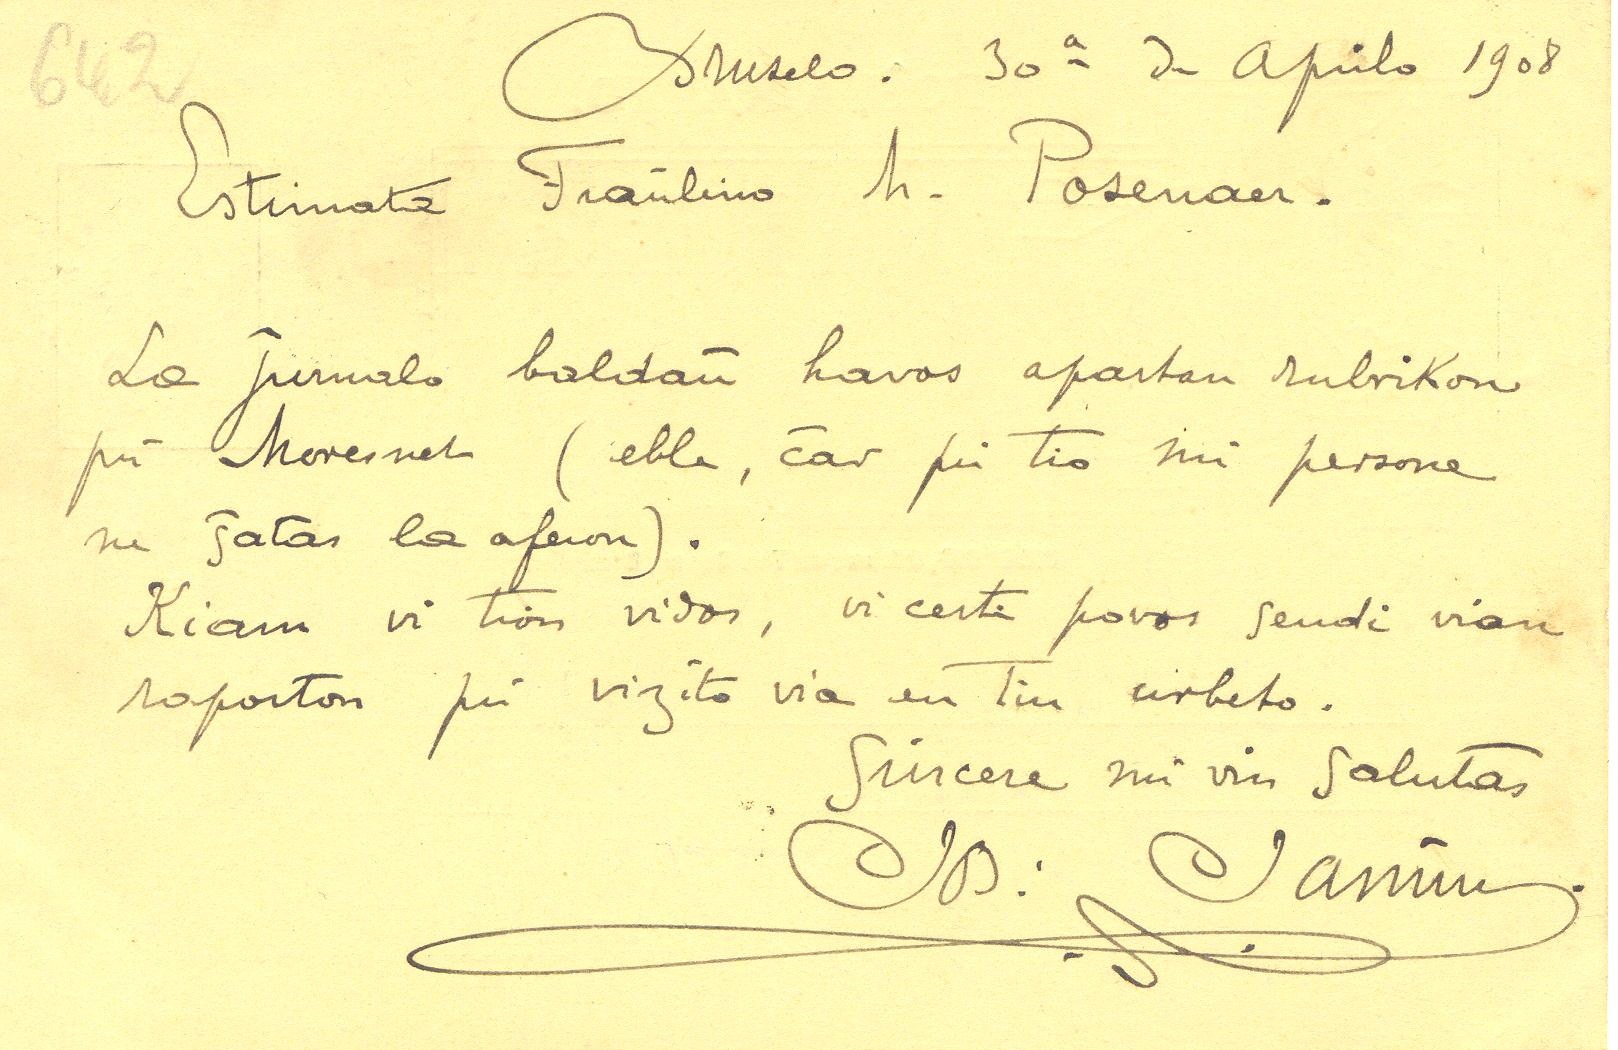 642
Bruselo. 30ª de Aprilo 1908
Estimata Fraŭlino M. Posenaer.
La ĵurnalo baldaŭ havos apartan rubrikon
pri Moresnet (eble, ĉar pri tio mi persone
ne ŝatas la aferon).
Kiam vi tion vidos, vi certe povos sendi vian
raporton pri vizito via en tiu urbeto.
Sincere mi vin salutas